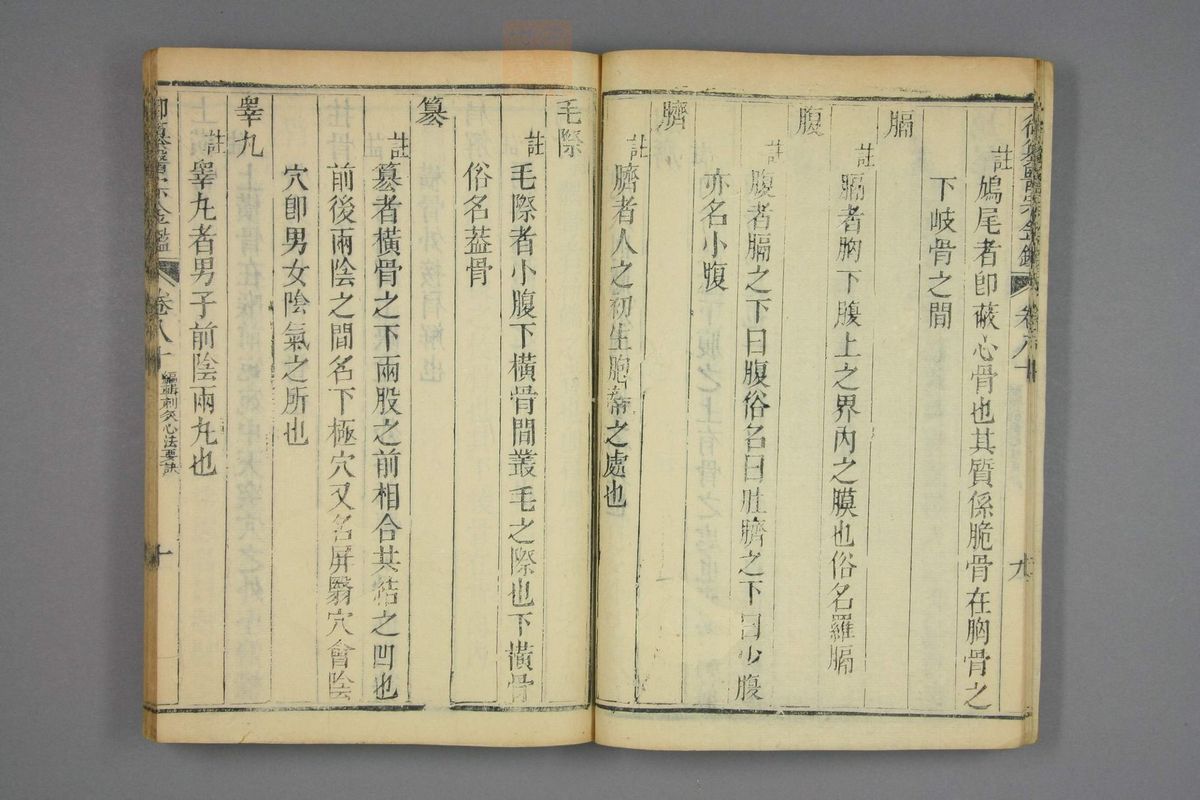 御纂醫宗金鑑 卷八十 九
註鳩尾者卽蔽心骨也其質係脆骨在胸骨之
下岐骨之間
膈
註膈者胸下腹上之界內之膜也俗名羅膈
腹
註腹者膈之下曰腹俗名曰肚臍之下曰少腹
亦名小腹
臍
註臍者人之初生胞蒂之處也
毛際
註毛際者小腹下橫骨間叢毛之際也下橫骨
俗名蓋骨
篡
註篡者橫骨之下兩股之前相合共結之凹也
前後兩陰之間名下極穴又名屏翳穴會陰
穴卽男女陰氣之所也
睪丸
註睪丸者男子前陰兩丸也
御纂醫宗金鑑 卷八十 編輯刺灸心法要訣 十